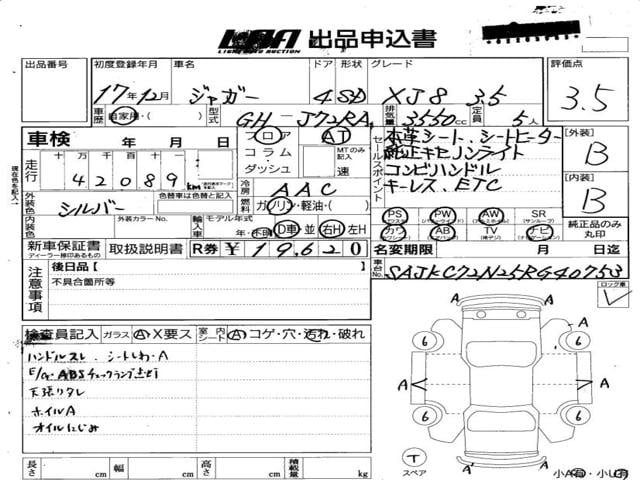 LAA 出品申込書
LIGHT AUTO AUCTION
出品番号 初度登録年月 車名 ドア 形状 グレード 評価点
17年12月 ジャガー 4 SD XJ8 3.5 3.5
車歴 自家用・( ) 型式 GH-J72RA 排気量 3550cc 定員 5人
車検 年 月 日
フロア AT
コラム MTのみ記入
ダッシュ 速
セールスポイント
本革シート、シートヒーター
純正キセノンライト
コンビハンドル
キーレス、ETC
[外装] B
[内装] B
現在色を記入
走行 十 万 千 百 十 一
42089 km
冷房 AAC
外装色 シルバー 色替車は色替と記入
燃料 ガソリン・軽油・( )
内装色 外装カラーNo. 輸入車 モデル年式 年・不明 D車 並 右H 左H
PS PW AW SR
(パワステ) (パワーウインドウ) (アルミホイール) (サンルーフ)
カワ AB TV ナビ
純正品のみ丸印
新車保証書 取扱説明書 R券 ¥19,620
ディーラー捺印あるもの
名変期限 月 日迄
注意事項 後日品【 】
不具合箇所等
車台No. SAJKC72N25RG40753
ロック車
検査員記入 ガラス A X要ス 室内シート A コゲ・穴・汚れ・破れ
ハンドルスレ、シートしわ・A
E/G・ABSチェックランプ点灯
天張りタレ
ホイルA
オイルにじみ
A
A
6 6
A A
6 6
T
スペア
A A
長さ cm 幅 cm 高さ cm 積載量 kg
小A有・小U有